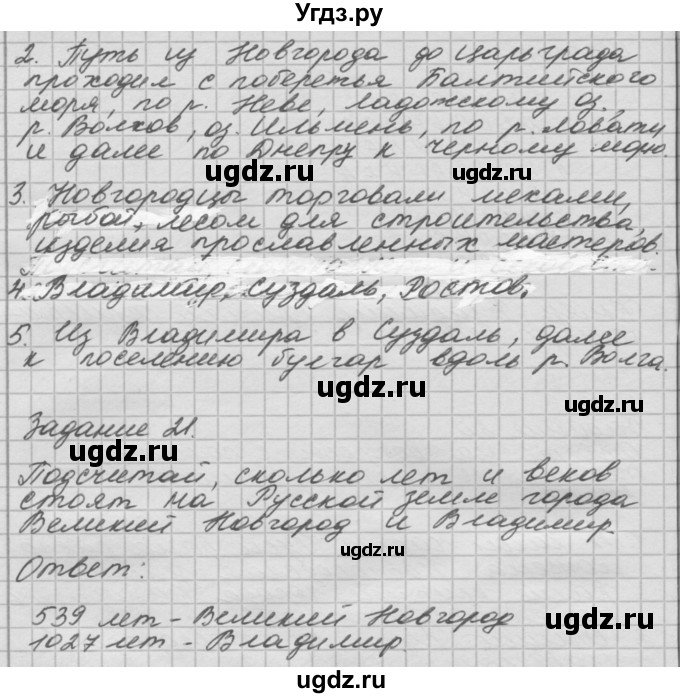 Угдз.ру
2. Путь из Новгорода до Царьграда
проходил с побережья Балтийского
моря, по р. Неве, Ладожскому оз.
р. Волхов, оз. Ильмень, по р. Ловати
и далее по Днепру к Черному морю.
ugdz.ru ugdz.ru
3. Новгородцы торговали мехами,
рыбой, лесом для строительства,
изделия прославленных мастеров.
ugdz.ru
4. Владимир, Суздаль, Ростов.
5. Из Владимира в Суздаль, далее
к поселению булгар вдоль р. Волга.
ugdz.ru
Задание 21.
ugdz.ru
Подсчитай, сколько лет и веков
стоят на Русской земле города
Великий Новгород и Владимир
ugdz.ru
Ответ:
ugdz.ru
539 лет - Великий Новгород
1027 лет - Владимир.
ugdz.ru